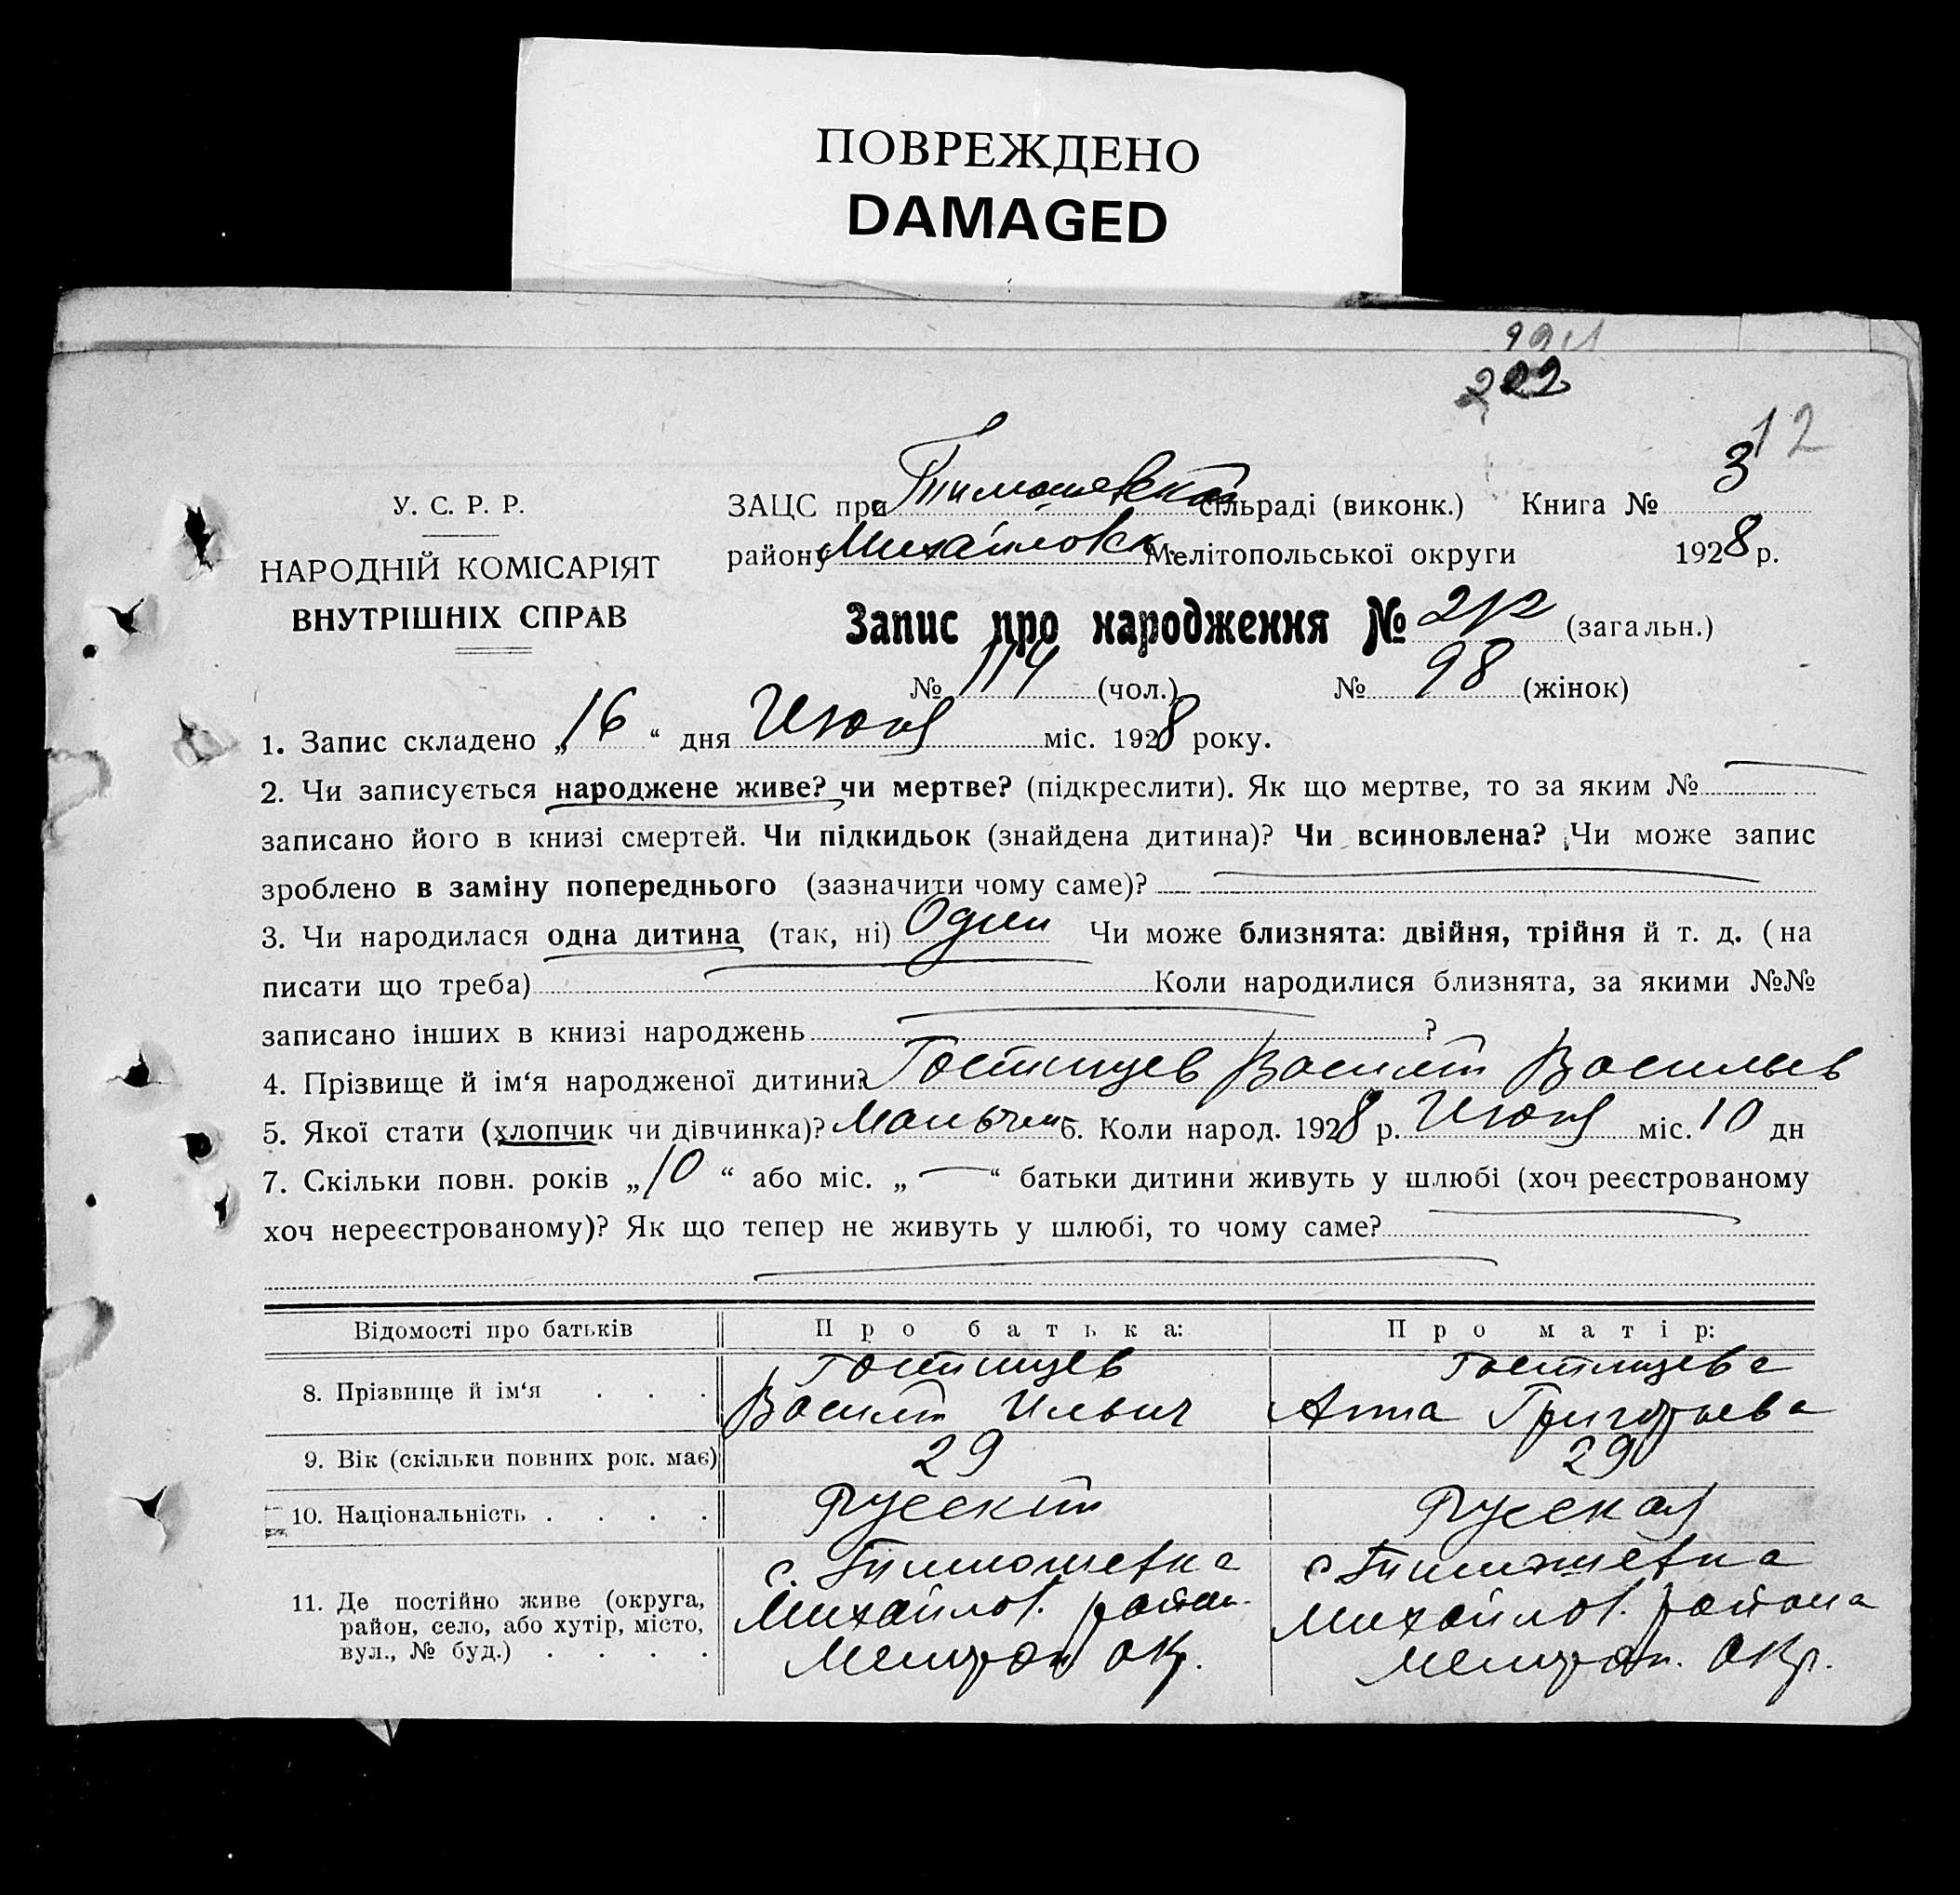 ПОВРЕЖДЕНО
DAMAGED
202
12
У. С. Р. Р.
НАРОДНІЙ КОМІСАРІЯТ
ВНУТРІШНІХ СПРАВ
ЗАЦС при Тимошевской сільраді (виконк.) Книга № 3
району Михайловск. Мелітопольської округи 1928 р.
Запис про народження № 212 (загальн.)
№ 114 (чол.) № 98 (жінок)
1. Запис складено „16“ дня Июня міс. 1928 року.
2. Чи записується народжене живе? чи мертве? (підкреслити). Як що мертве, то за яким №
записано його в книзі смертей. Чи підкидьок (знайдена дитина)? Чи всиновлена? Чи може запис
зроблено в заміну попереднього (зазначити чому саме)?
3. Чи народилася одна дитина (так, ні) Один Чи може близнята: двійня, трійня й т. д. (на
писати що треба) Коли народилися близнята, за якими №№
записано інших в книзі народжень ?
4. Прізвище й ім‘я народженої дитини? Гостищев Василий Васильев
5. Якої стати (хлопчик чи дівчинка)? Мальчик 6. Коли народ. 1928 р. Июня міс. 10 дн
7. Скільки повн. років „10“ або міс. „—“ батьки дитини живуть у шлюбі (хоч реєстрованому
хоч нереєстрованому)? Як що тепер не живуть у шлюбі, то чому саме?
Відомості про батьків Про батька: Про матір:
8. Прізвище й ім‘я . . . Гостищев Василий Ильич Гостищева Анна Григорьева
9. Вік (скільки повних рок. має) 29 29
10. Національність . . . . Русский Русская
11. Де постійно живе (округа, район, село, або хутір, місто, вул., № буд.) . . . . с. Тимошевка Михайлов. район. Мелитоп окр. с. Тимошевка Михайлов. района Мелитоп. окр.